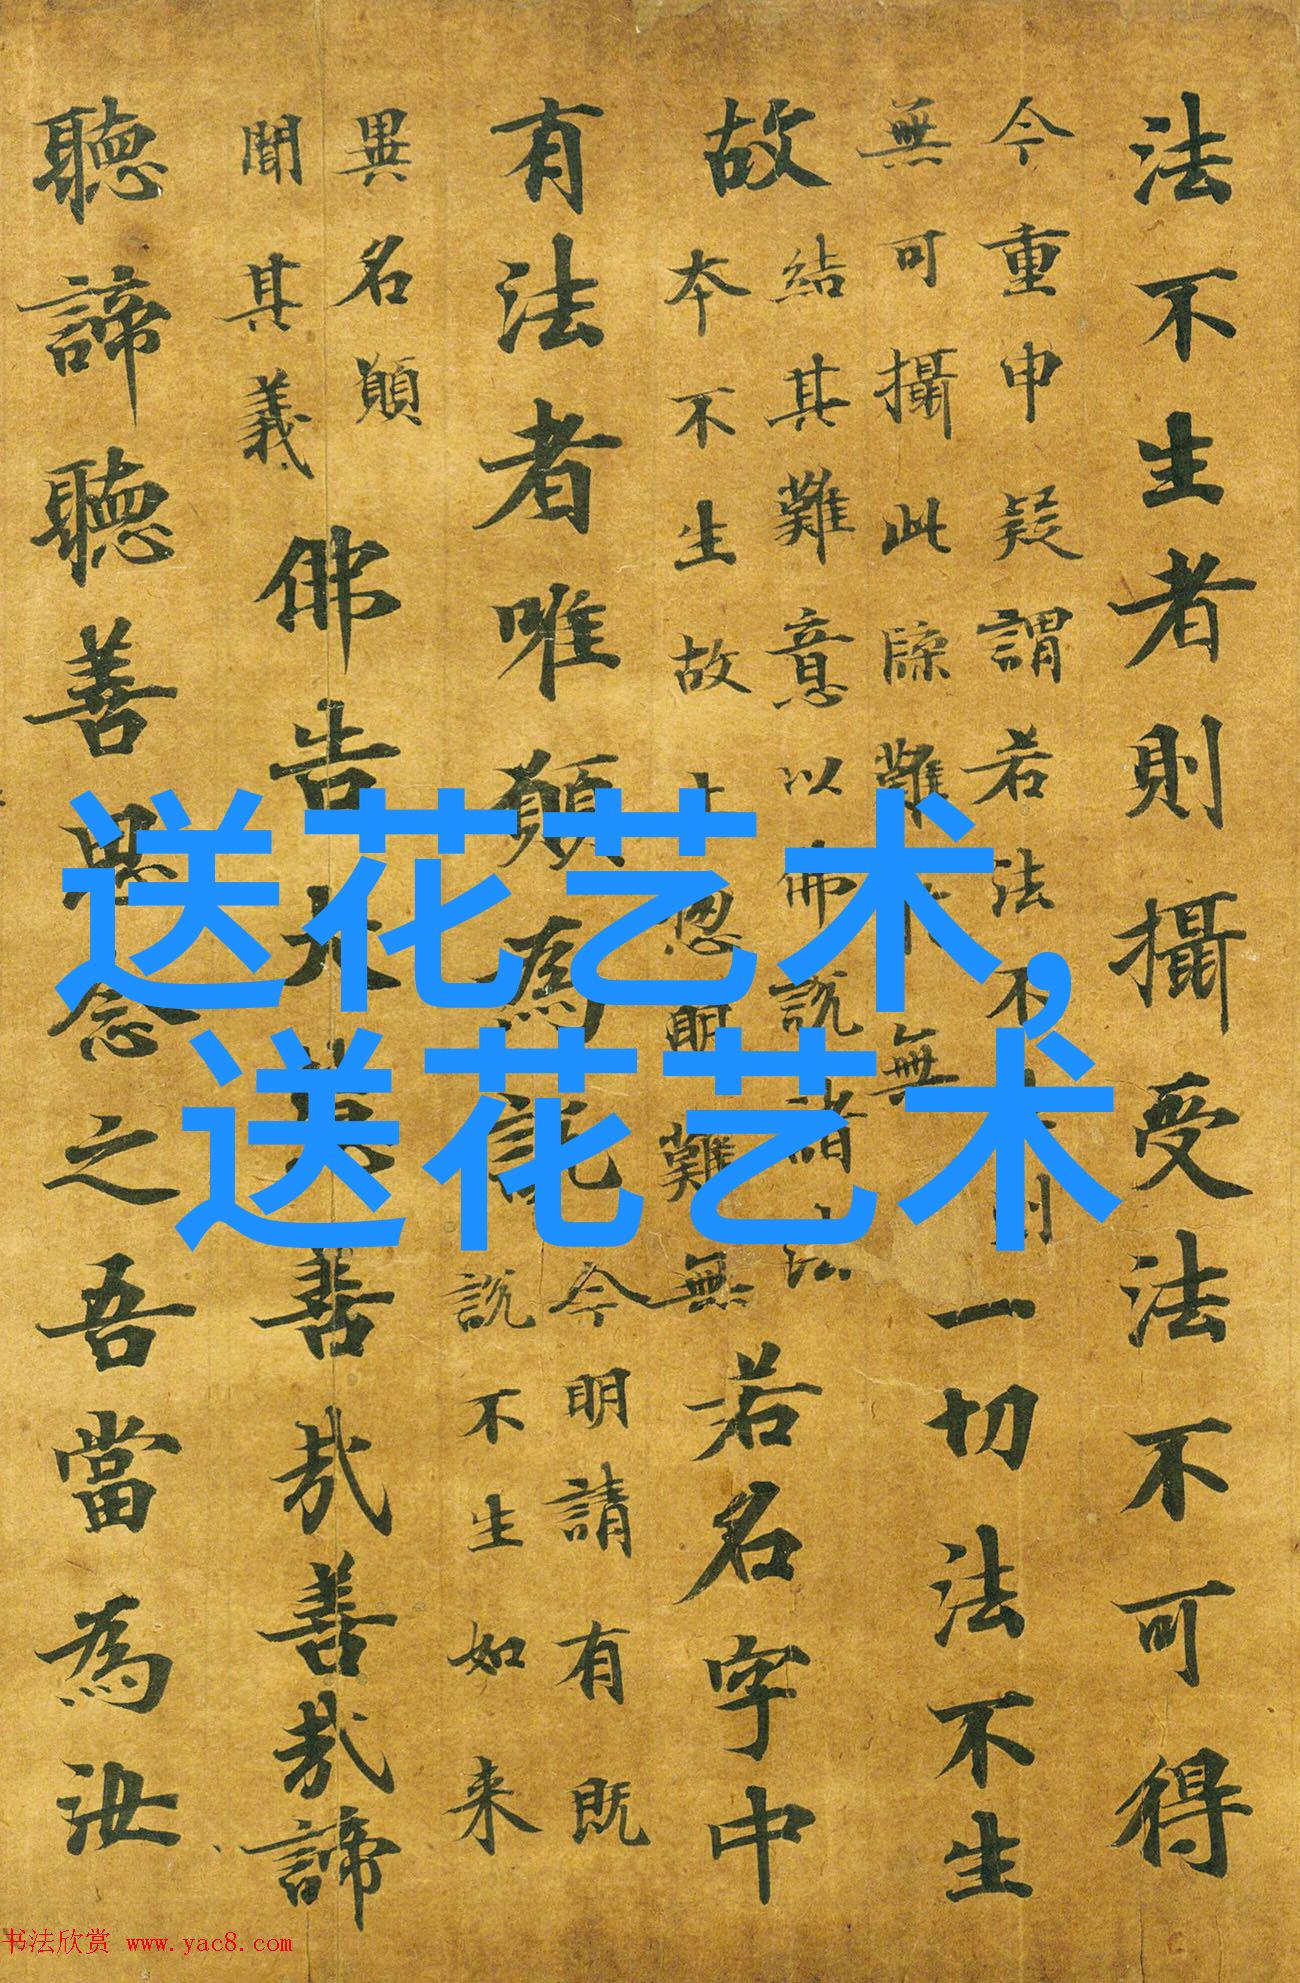 法不生者則攝受法不可得
今重申疑謂若法不生則
無可攝此牒難下無
一切法不生
故
結其難意以佛說諸法
本不生故 明難無
若名字中
有法者唯願為說
今明請有既
說不生如来
異名願
聞其義
佛告大慧善哉善哉諦
聽諦聽善思念之吾當為汝
送花艺术,
送花艺术
书法欣赏 www.yac8.com